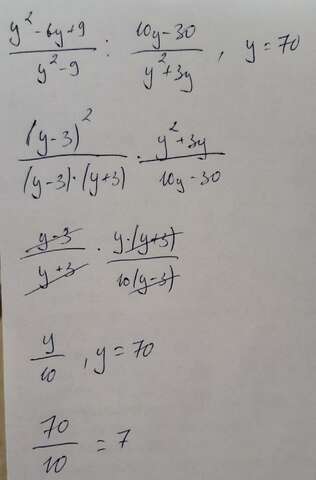 (y² - 6y + 9)/(y² - 9) : (10y - 30)/(y² + 3y) , y = 70
(y - 3)²/((y - 3) · (y + 3)) · (y² + 3y)/(10y - 30)
(y - 3)/(y + 3) · (y · (y + 3))/(10(y - 3))
y/10 , y = 70
70/10 = 7